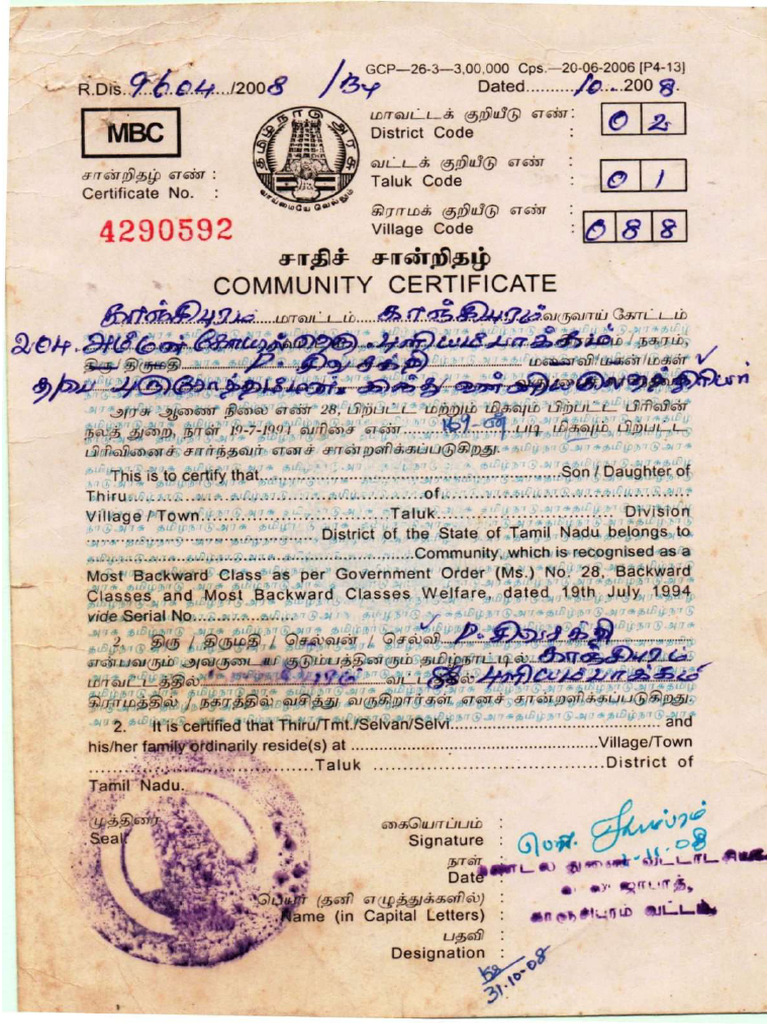 GCP—26-3—3,00,000 Cps.—20-06-2006 [P4-13]
R.Dis. 9604 /2008 /B4 Dated 10 2008.
MBC
தமிழ்நாடு அரசு
வாய்மையே வெல்லும்
மாவட்டக் குறியீடு எண் :
District Code : 02
சான்றிதழ் எண் :
Certificate No. :
வட்டக் குறியீடு எண் :
Taluk Code : 01
4290592
கிராமக் குறியீடு எண் :
Village Code : 088
சாதிச் சான்றிதழ்
COMMUNITY CERTIFICATE
காஞ்சிபுரம் மாவட்டம் காஞ்சிபுரம் வருவாய் கோட்டம்
204, அம்மன் கோயில் தெரு புளியம்பாக்கம் / நகரம்,
திரு / திருமதி P. சிவசக்தி மனைவி/மகன்/மகள்
த/பெ புருசோத்தமன்
அரசு ஆணை நிலை எண் 28, பிற்பட்ட மற்றும் மிகவும் பிற்பட்ட பிரிவின்
நலத் துறை, நாள் 19-7-1994 வரிசை எண் படி மிகவும் பிற்பட்ட
பிரிவினைச் சார்ந்தவர் எனச் சான்றளிக்கப்படுகிறது.
This is to certify that Son / Daughter of
Thiru of
Village / Town Taluk Division
District of the State of Tamil Nadu belongs to
Community, which is recognised as a
Most Backward Class as per Government Order (Ms.) No. 28, Backward
Classes and Most Backward Classes Welfare, dated 19th July, 1994
vide Serial No.
2. திரு / திருமதி / செல்வன் / செல்வி P. சிவசக்தி
என்பவரும் அவருடைய குடும்பத்தினரும் தமிழ்நாட்டில் காஞ்சிபுரம்
மாவட்டத்தில் வட்டத்தில் புளியம்பாக்கம்
கிராமத்தில் / நகரத்தில் வசித்து வருகிறார்கள் எனச் சான்றளிக்கப்படுகிறது.
2. It is certified that Thiru/Tmt./Selvan/Selvi and
his/her family ordinarily reside(s) at Village/Town
Taluk District of
Tamil Nadu.
முத்திரை கையொப்பம் :
Seal: Signature :
நாள் :
Date
பெயர் (தனி எழுத்துக்களில்)
Name (in Capital Letters) :
காஞ்சிபுரம் வட்டம்.
பதவி :
Designation :
31.10.08